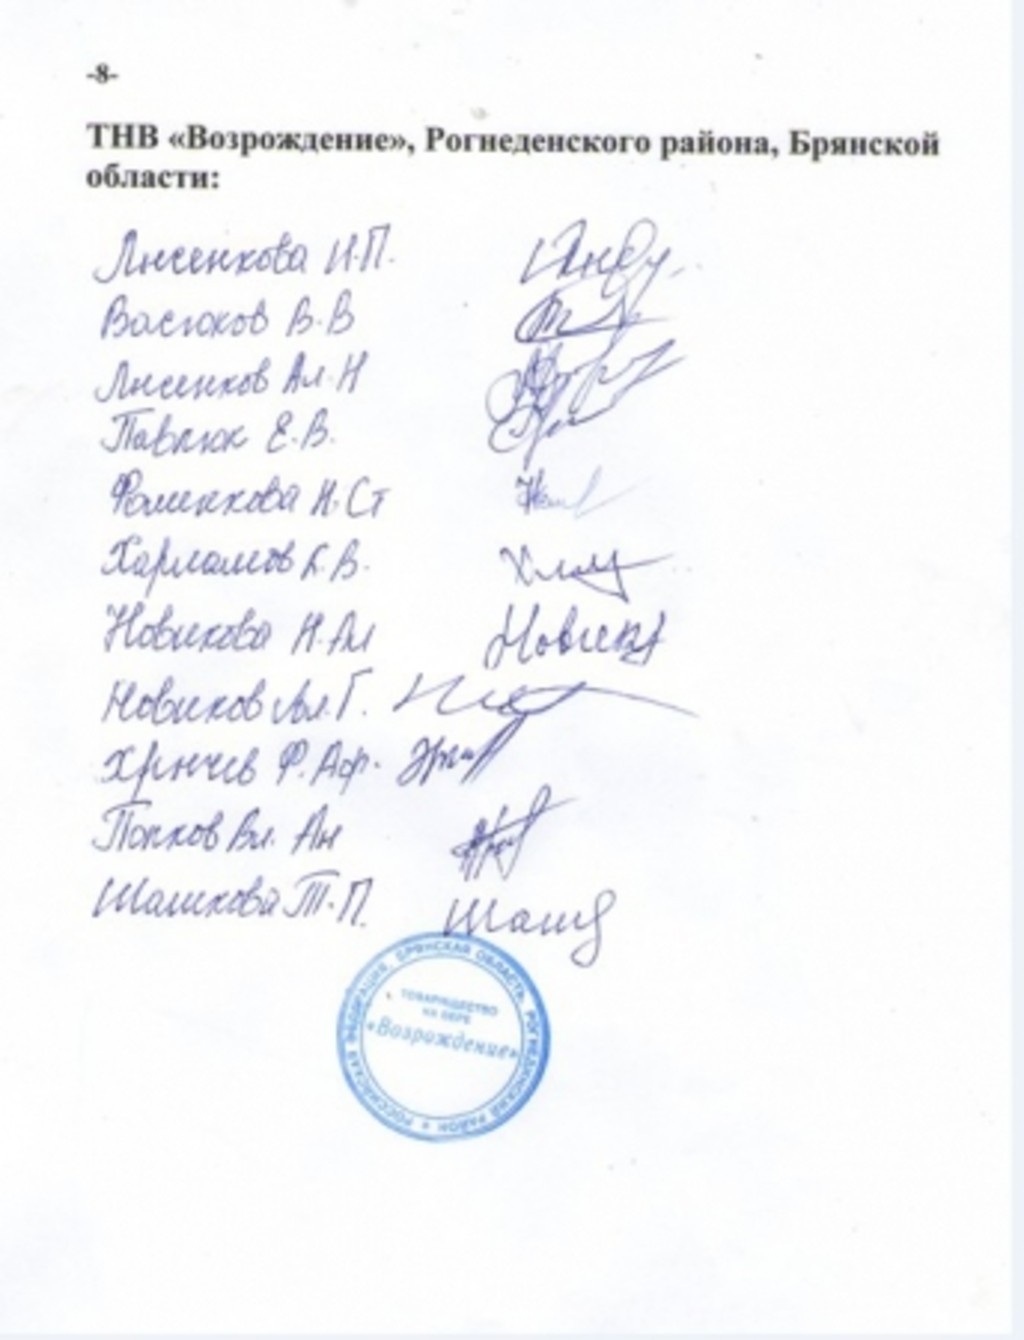 -8-
ТНВ «Возрождение», Рогнеденского района, Брянской
области:
Лисенкова Н.П.
Васюков В.В
Лисенков Ал.Н
Павлюк Е.В.
Фоменкова Н.Ст
Харламов К.В.
Новикова Н.Ал Новик
Новиков Ал.Г.
Ф.Аф.
Попков Вл. Ан
Шашкова Т.П. Шаш
РОССИЙСКАЯ ФЕДЕРАЦИЯ, БРЯНСКАЯ ОБЛАСТЬ, РОГНЕДИНСКИЙ РАЙОН
ТОВАРИЩЕСТВО
НА ВЕРЕ
«Возрождение»